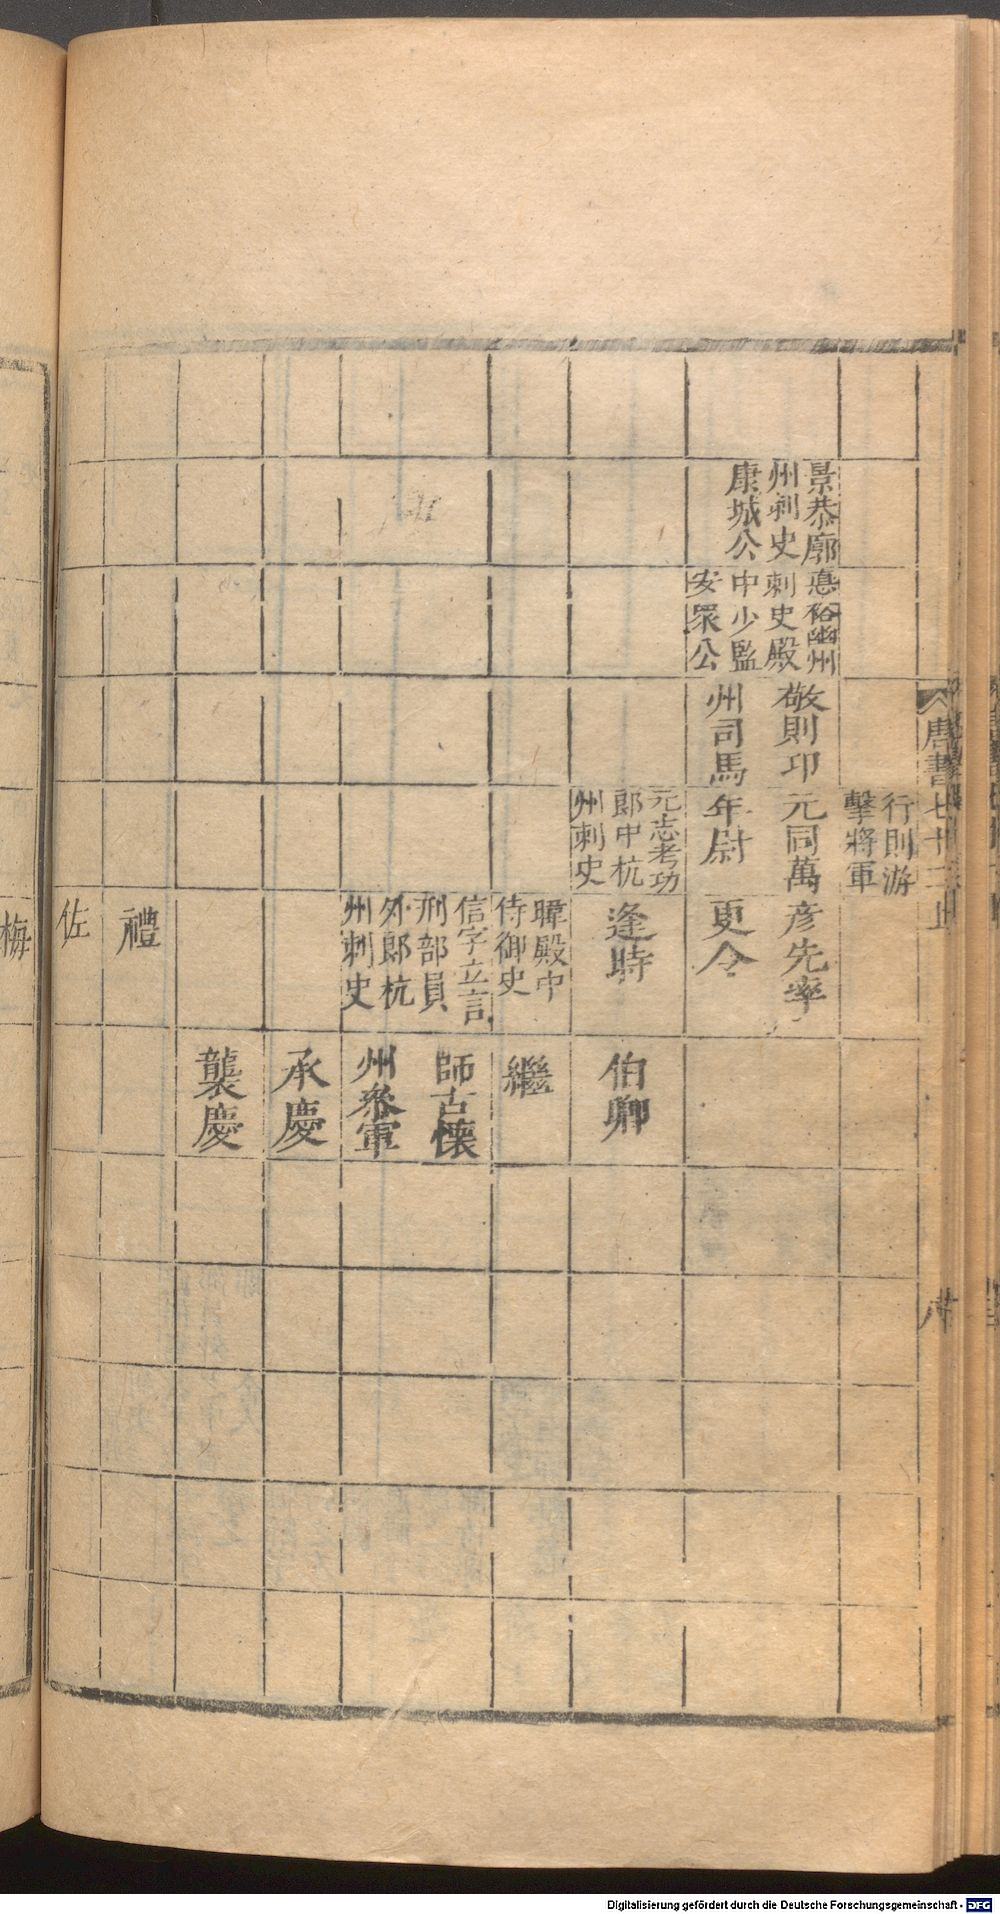 唐書七十二上
行則游
擊將軍
景恭廓
州刺史
康城公
悳裕幽州
刺史殿
中少監
安眾公
敬則卭
州司馬
元同萬
年尉
彥先率
更令
元志考功
郎中杭
州刺史
逢時
伯卿
暐殿中
侍御史
繼
信字立言
刑部員
外郎杭
州刺史
師古懷
州叅軍
承慶
襲慶
禮
佐
梅
Digitalisierung gefördert durch die Deutsche Forschungsgemeinschaft - DFG